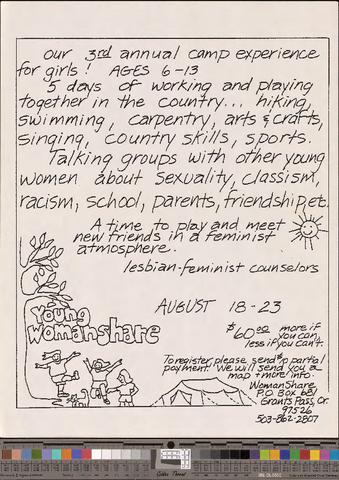 our 3rd annual camp experience
for girls! AGES 6-13
5 days of working and playing
together in the country... hiking,
swimming, carpentry, arts & crafts,
singing, country skills, sports.
Talking groups with other young
women about sexuality, classism,
racism, school, parents, friendship, etc.
A time to play and meet
new friends in a feminist
atmosphere.
lesbian-feminist counselors
AUGUST 18-23
young
womanshare
$60.00 more if
you can,
less if you can't.
To register, please send $10 partial
payment. We will send you a
map & more info
WomanShare
P.O. Box 681
Grants Pass, Or.
97526
503-862-2807